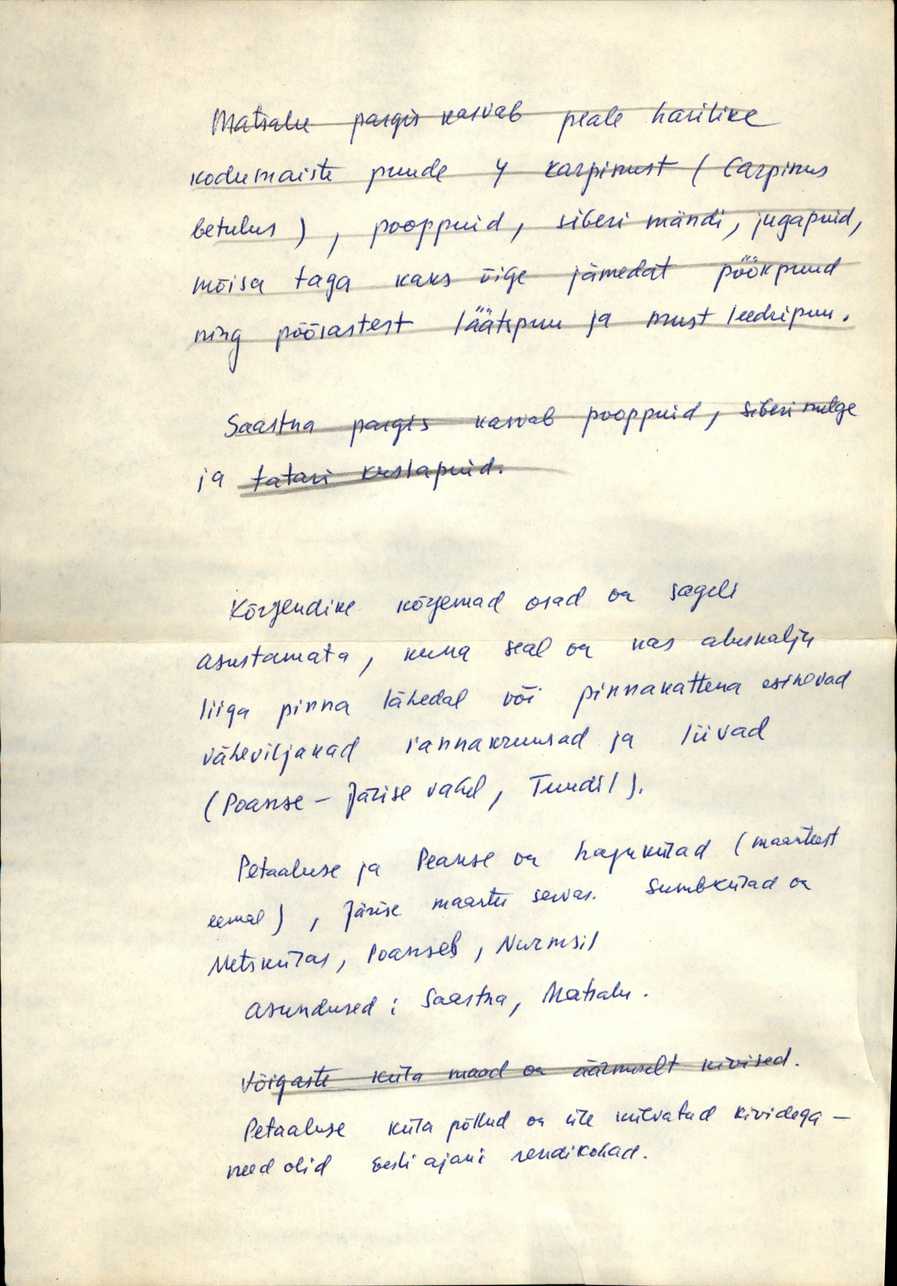 Matsalu pargis kasvab peale harilike
kodumaiste puude 4 karpinust (Carpinus
betulus), pooppuid, siberi mändi, jugapuid,
mõisa taga kaks õige jämedat pöökpuud
ning põõsastest läätspuu ja must leedripuu.
Saastna pargis kasvab pooppuid, siberi nulge
ja tatari kuslapuid.
Kõrgendike kõrgemad osad on sageli
asustamata, kuna seal on kas aluskalju
liiga pinna lähedal või pinnakattena esinevad
väheviljakad rannakruusad ja liivad
(Poanse - Järise vahel, Tuudil).
Petaaluse ja Peanse on hajukülad (maanteest
eemal), Järise maantee servas. Sumbkülad on
Metskülas, Poanseb, Nurmsil
Asundused: Saastna, Matsalu.
Võigaste küla maad on äärmiselt kivised.
Petaaluse küla põllud on üle külvatud kividega -
need olid Eesti ajani rendikohad.